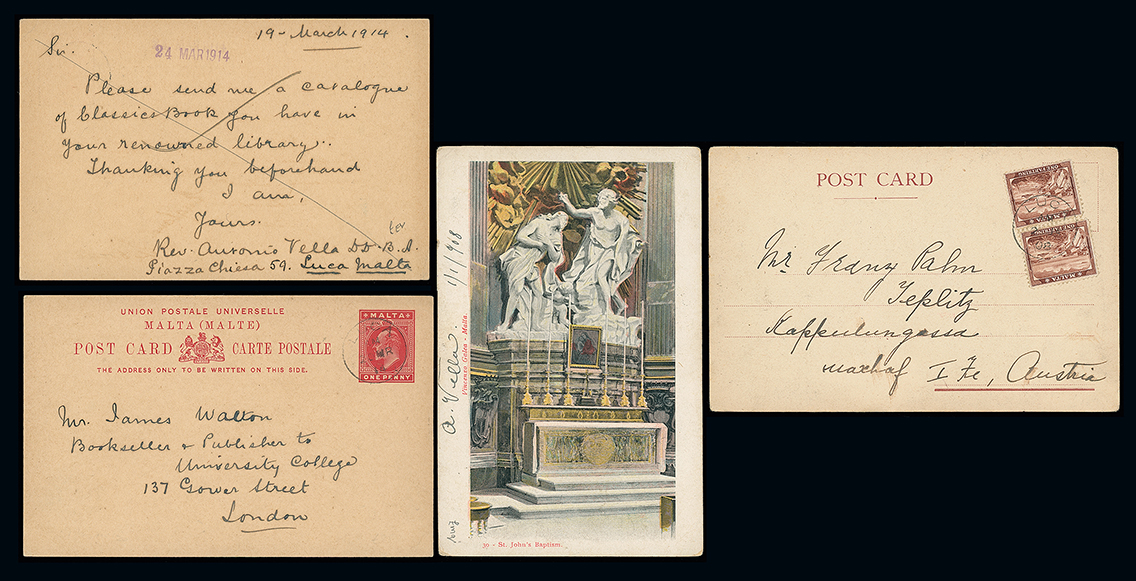 19 - March 1914.
Sir.
24 MAR 1914
Please send me a catalogue
of Classics Book you have in
your renowned library..
Thanking you beforehand
I am,
Yours.
Rev. Antonio Vella DD. B.A.
Piazza Chiesa 59. Luca Malta
UNION POSTALE UNIVERSELLE
MALTA (MALTE)
POST CARD CARTE POSTALE
THE ADDRESS ONLY TO BE WRITTEN ON THIS SIDE.
MALTA
ONE PENNY
MR
Mr. James Walton
Bookseller & Publisher to
University College
137 Gower Street
London
A. Vella. 1/1/908
Vincenzo Galea - Malta.
30 - St. John's Baptism.
POST CARD
MALTA
ONE FARTHING
MALTA
ONE FARTHING
Mr Franz Palm
Teplitz
I Fe, Austria